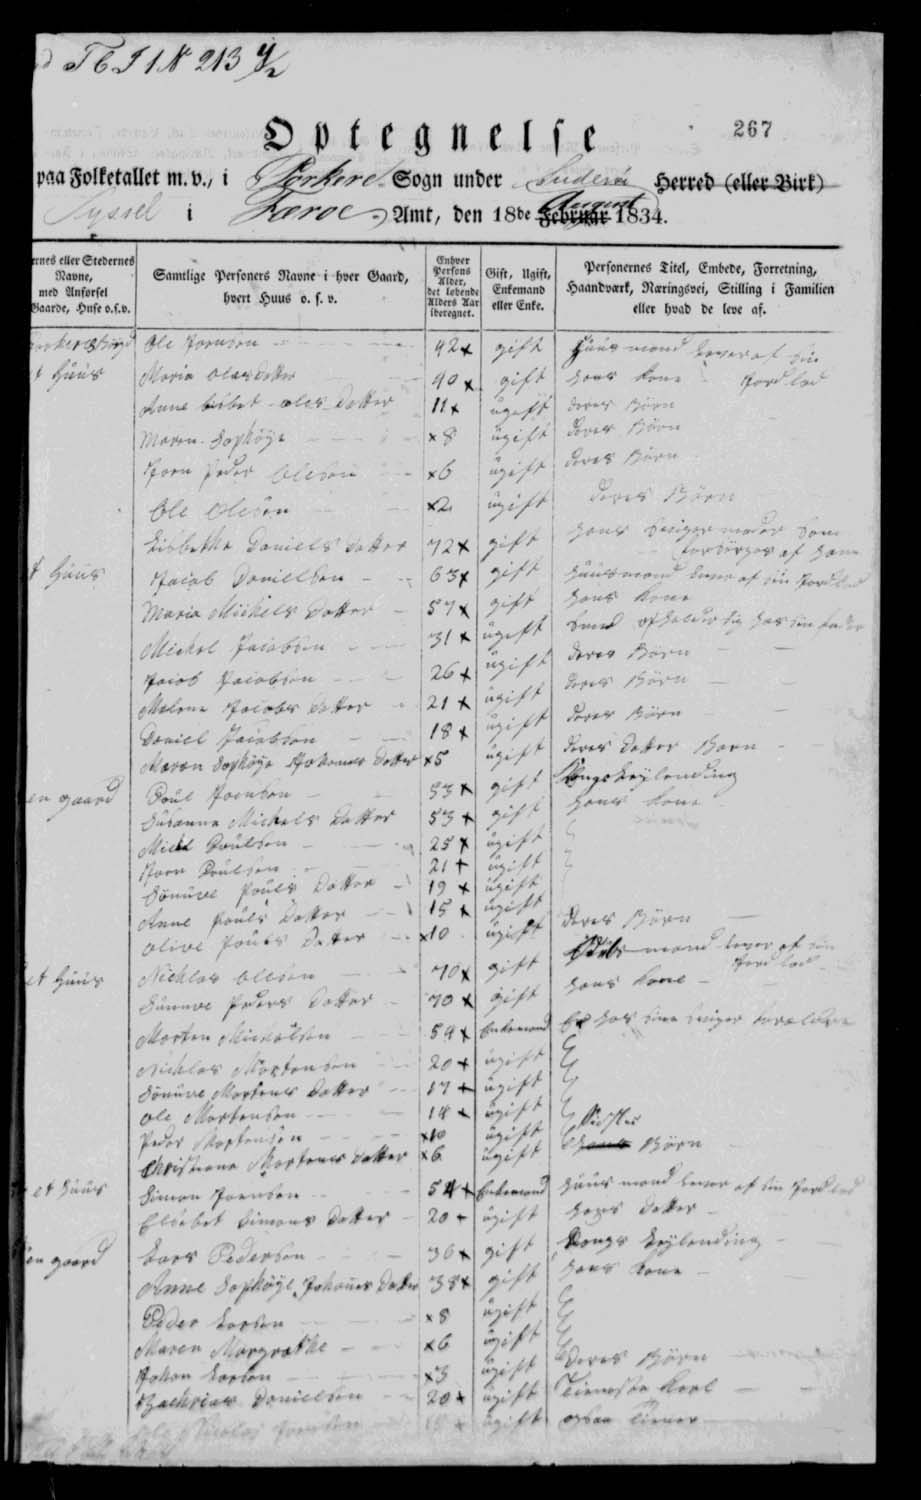 T C I 1 N 213 4/2
Optegnelse 267
paa Folketallet m. v., i Porkere Sogn under Suderöe Herred (eller Birk)
Syssel i Færoe Amt, den 18de Februar August 1834.
ernes eller Stedernes Navne, med Anførsel Gaarde, Huse o.s.v.
Samtlige Personers Navne i hver Gaard, hvert Huus o. s. v.
Enhver Persons Alder, det løbende Alders Aar iberegnet.
Gift, Ugift, Enkemand eller Enke.
Personernes Titel, Embede, Forretning, Haandværk, Næringsvei, Stilling i Familien eller hvad de leve af.
Ole Joensen 42 x gift Huusmand lever af sin
t Huus Maria Olesdatter 40 x gift hans Kone Jordlod
Anne Lisbet Oles Datter 11 x ugift deres Börn
Maren Sophöye x 8 ugift deres Börn
Joen Peder Olesen x 6 ugift deres Börn
Ole Olesen x 2 ugift deres Börn
Lisbetha Daniels Datter 72 x gift hans Sviger moder som
forsörges af ham
t Huus Jacob Danielsen 63 x gift Huusmand lever af sin Jordlod
Maria Michels Datter 57 x gift hans Kone
Michel Jacobsen 31 x ugift Sind opholder sig hos sin fader
Jacob Jacobsen 26 x ugift deres Börn
Malene Jacobs Datter 21 x ugift deres Börn
Daniel Jacobsen 18 x ugift deres Börn
Maren Sophöye Johannes Datter x 5 ugift deres Datter Barn
en gaard Poul Joensen 53 x gift Kongsleylending
Susanna Michels Datter 53 x gift hans Kone
Michel Poulsen 25 x ugift
Joen Poulsen 21 + ugift
Sönneve Pouls Datter 19 x ugift
Anne Pouls Datter 15 x ugift
Olive Pouls Datter x 10 ugift deres Börn
et Huus Nichlas Olesen 70 x gift mand lever af sin
Jordlod
Sunneve Peders Datter 70 x gift hans Kone
Morten Michelsen 54 x Enkemand hos sine Sviger forældre
Nichlas Mortensen 20 x ugift
Sönneve Mortens Datter 17 + ugift
Ole Mortensen 14 x ugift
Peder Mortensen x 10 ugift
Christiana Mortens Datter x 6 ugift Börn
et Huus Simon Joensen 54 x Enkemand Huusmand lever af sin Jordlod
Elsebet Simons Datter 20 - ugift hans Datter
en gaard Lars Pedersen 36 x gift Kongs leylending
Anne Sophöye Johannes Datter 38 x gift hans Kone
Peder Larsen x 8 ugift
Maren Margrethe x 6 ugift
Johan Larsen x 3 ugift deres Börn
Zachrias Danielsen 20 x ugift Tieneste Karl
Nicolai Joensen ugift ogsaa tiener